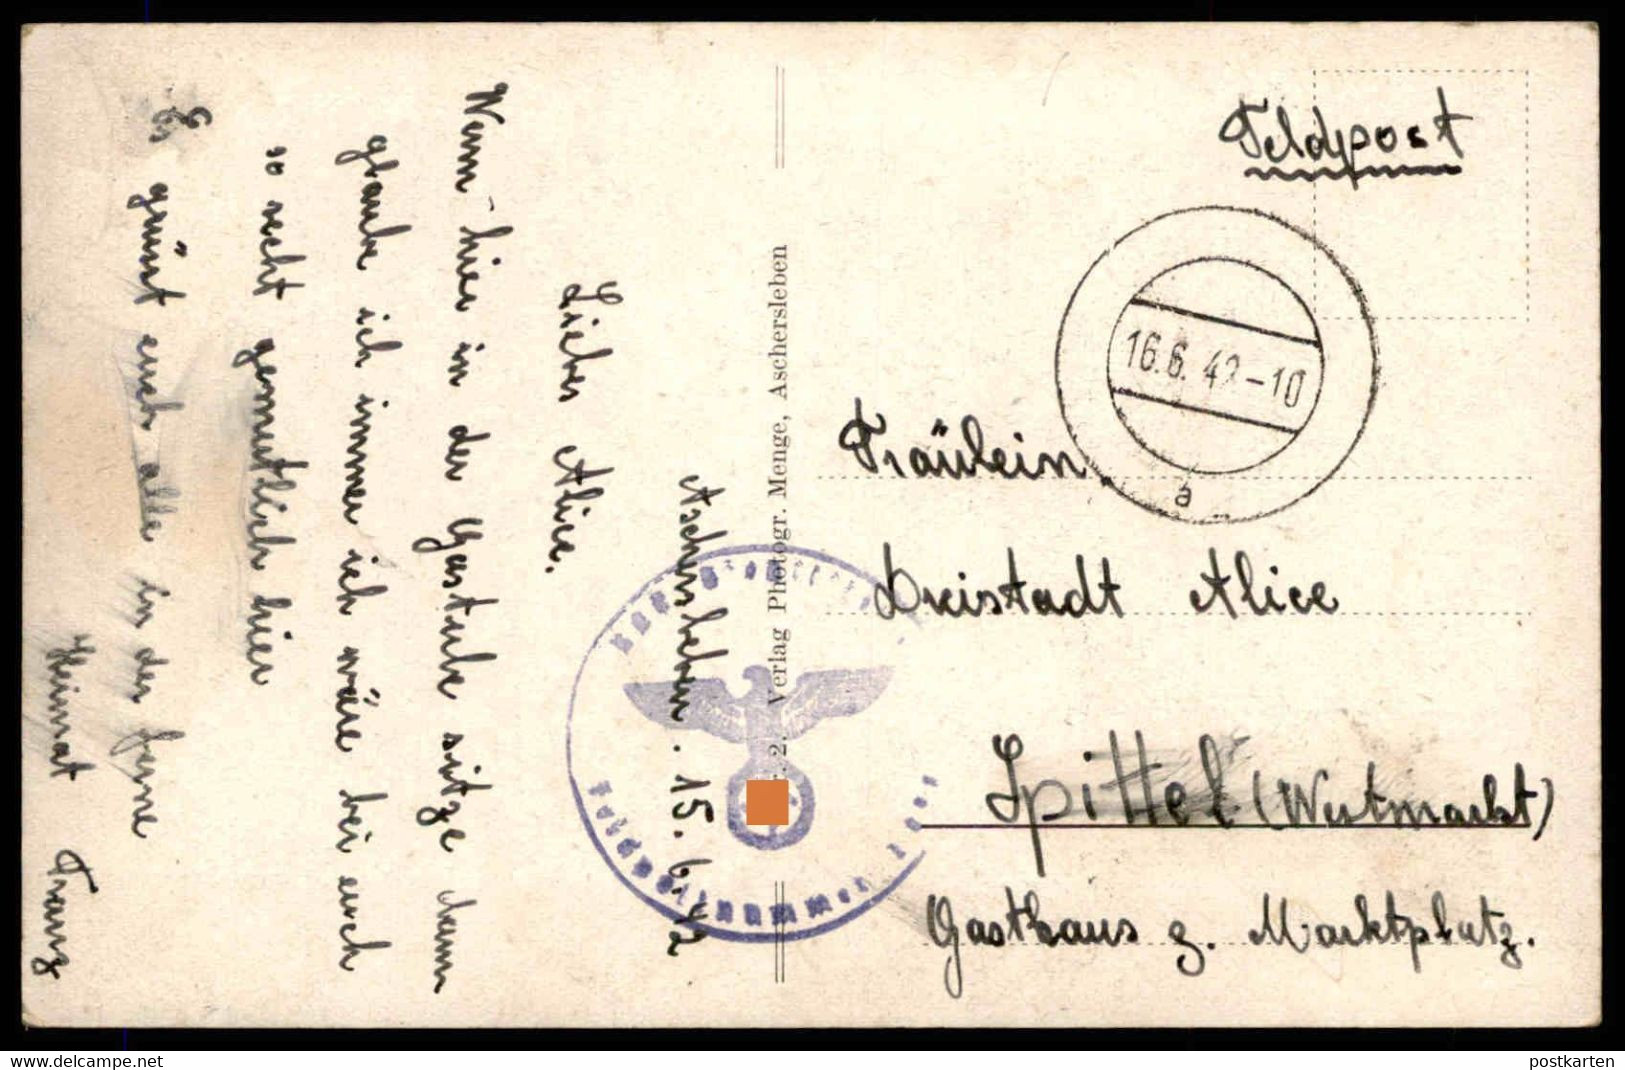 Feldpost
16.6.42-10
a
Fräulein
Dreistadt Alice
Spittel (Westmarkt)
Gasthaus z. Marktplatz.
Verlag Photogr. Menge, Aschersleben
2.
Feldpostnummer
Aschersleben. 15.6.42
Lieber Alice.
Wenn hier in der Gastube sitze dann
glaube ich immer ich wäre bei euch
so recht gemeutlich hier
Es grüust euch alle in der ferne
Heimat Franz
My website
postkarten